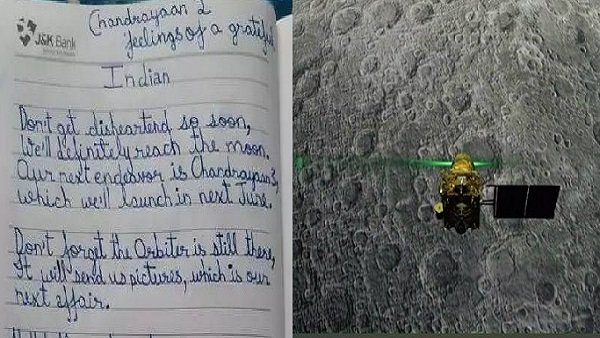 Chandrayaan 2
feelings of a grateful
J&K Bank
Indian
Don't get dishearterd so soon,
We'll definitely reach the moon.
Our next endeavor is Chandrayaan3,
which we'll launch in next June.
Don't forget the Orbiter is still there,
It will send us pictures, which is our
next affair.